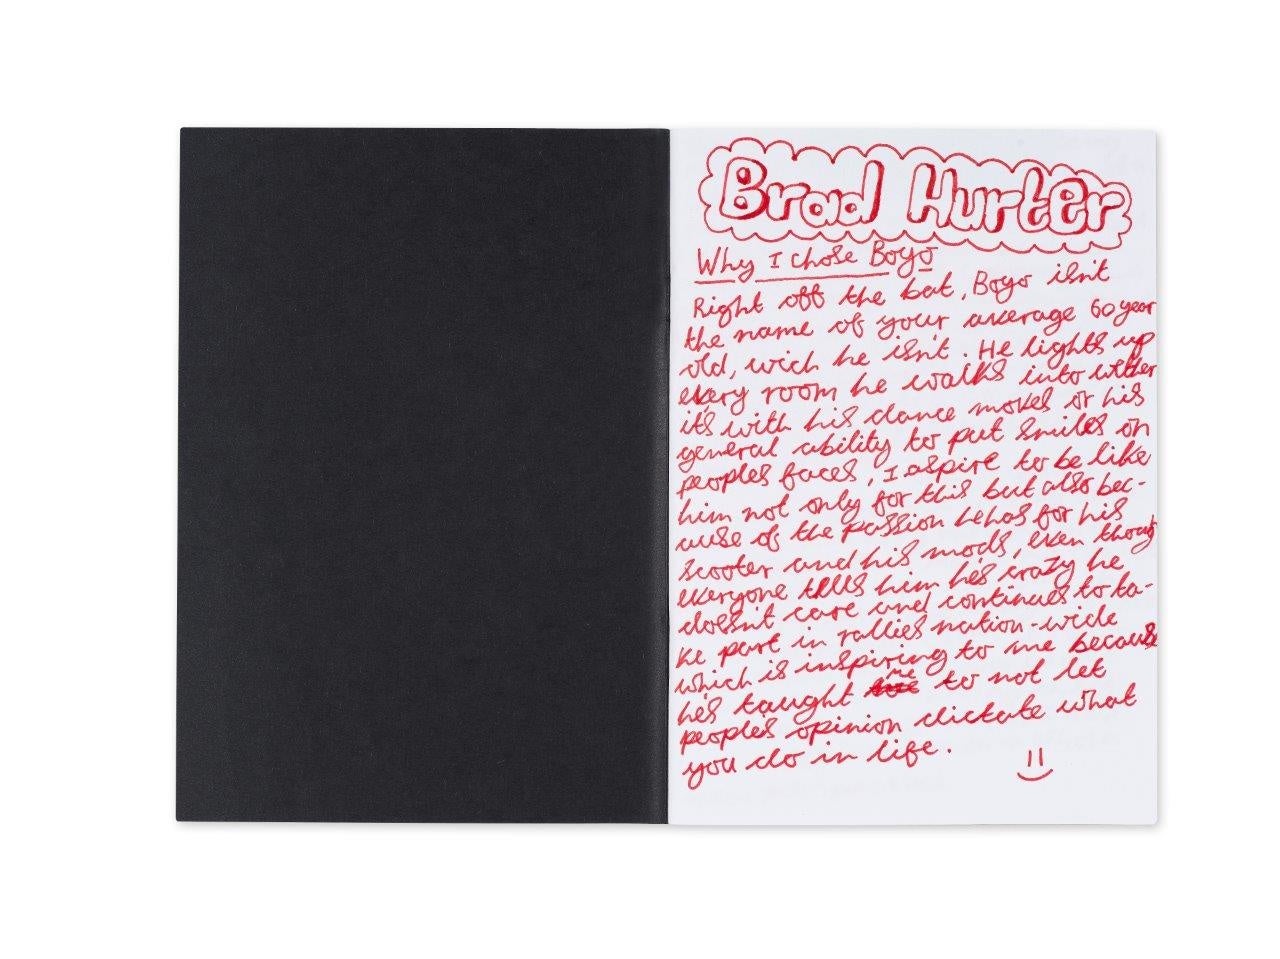 Brad Hurter
Why I chose Boyo
Right off the bat, Boyo isn't
the name of your average 60 year
old, wich he isn't. He lights up
every room he walks into wether
it's with his dance moves or his
general ability to put smiles on
peoples faces, I aspire to be like
him not only for this but also bec-
ause of the passion he has for his
scooter and his mods, even though
everyone tells him he's crazy he
doesn't care and continues to ta-
ke part in rallies nation-wide
which is inspiring to me because
he's taught me to not let
people's opinion dictate what
you do in life.